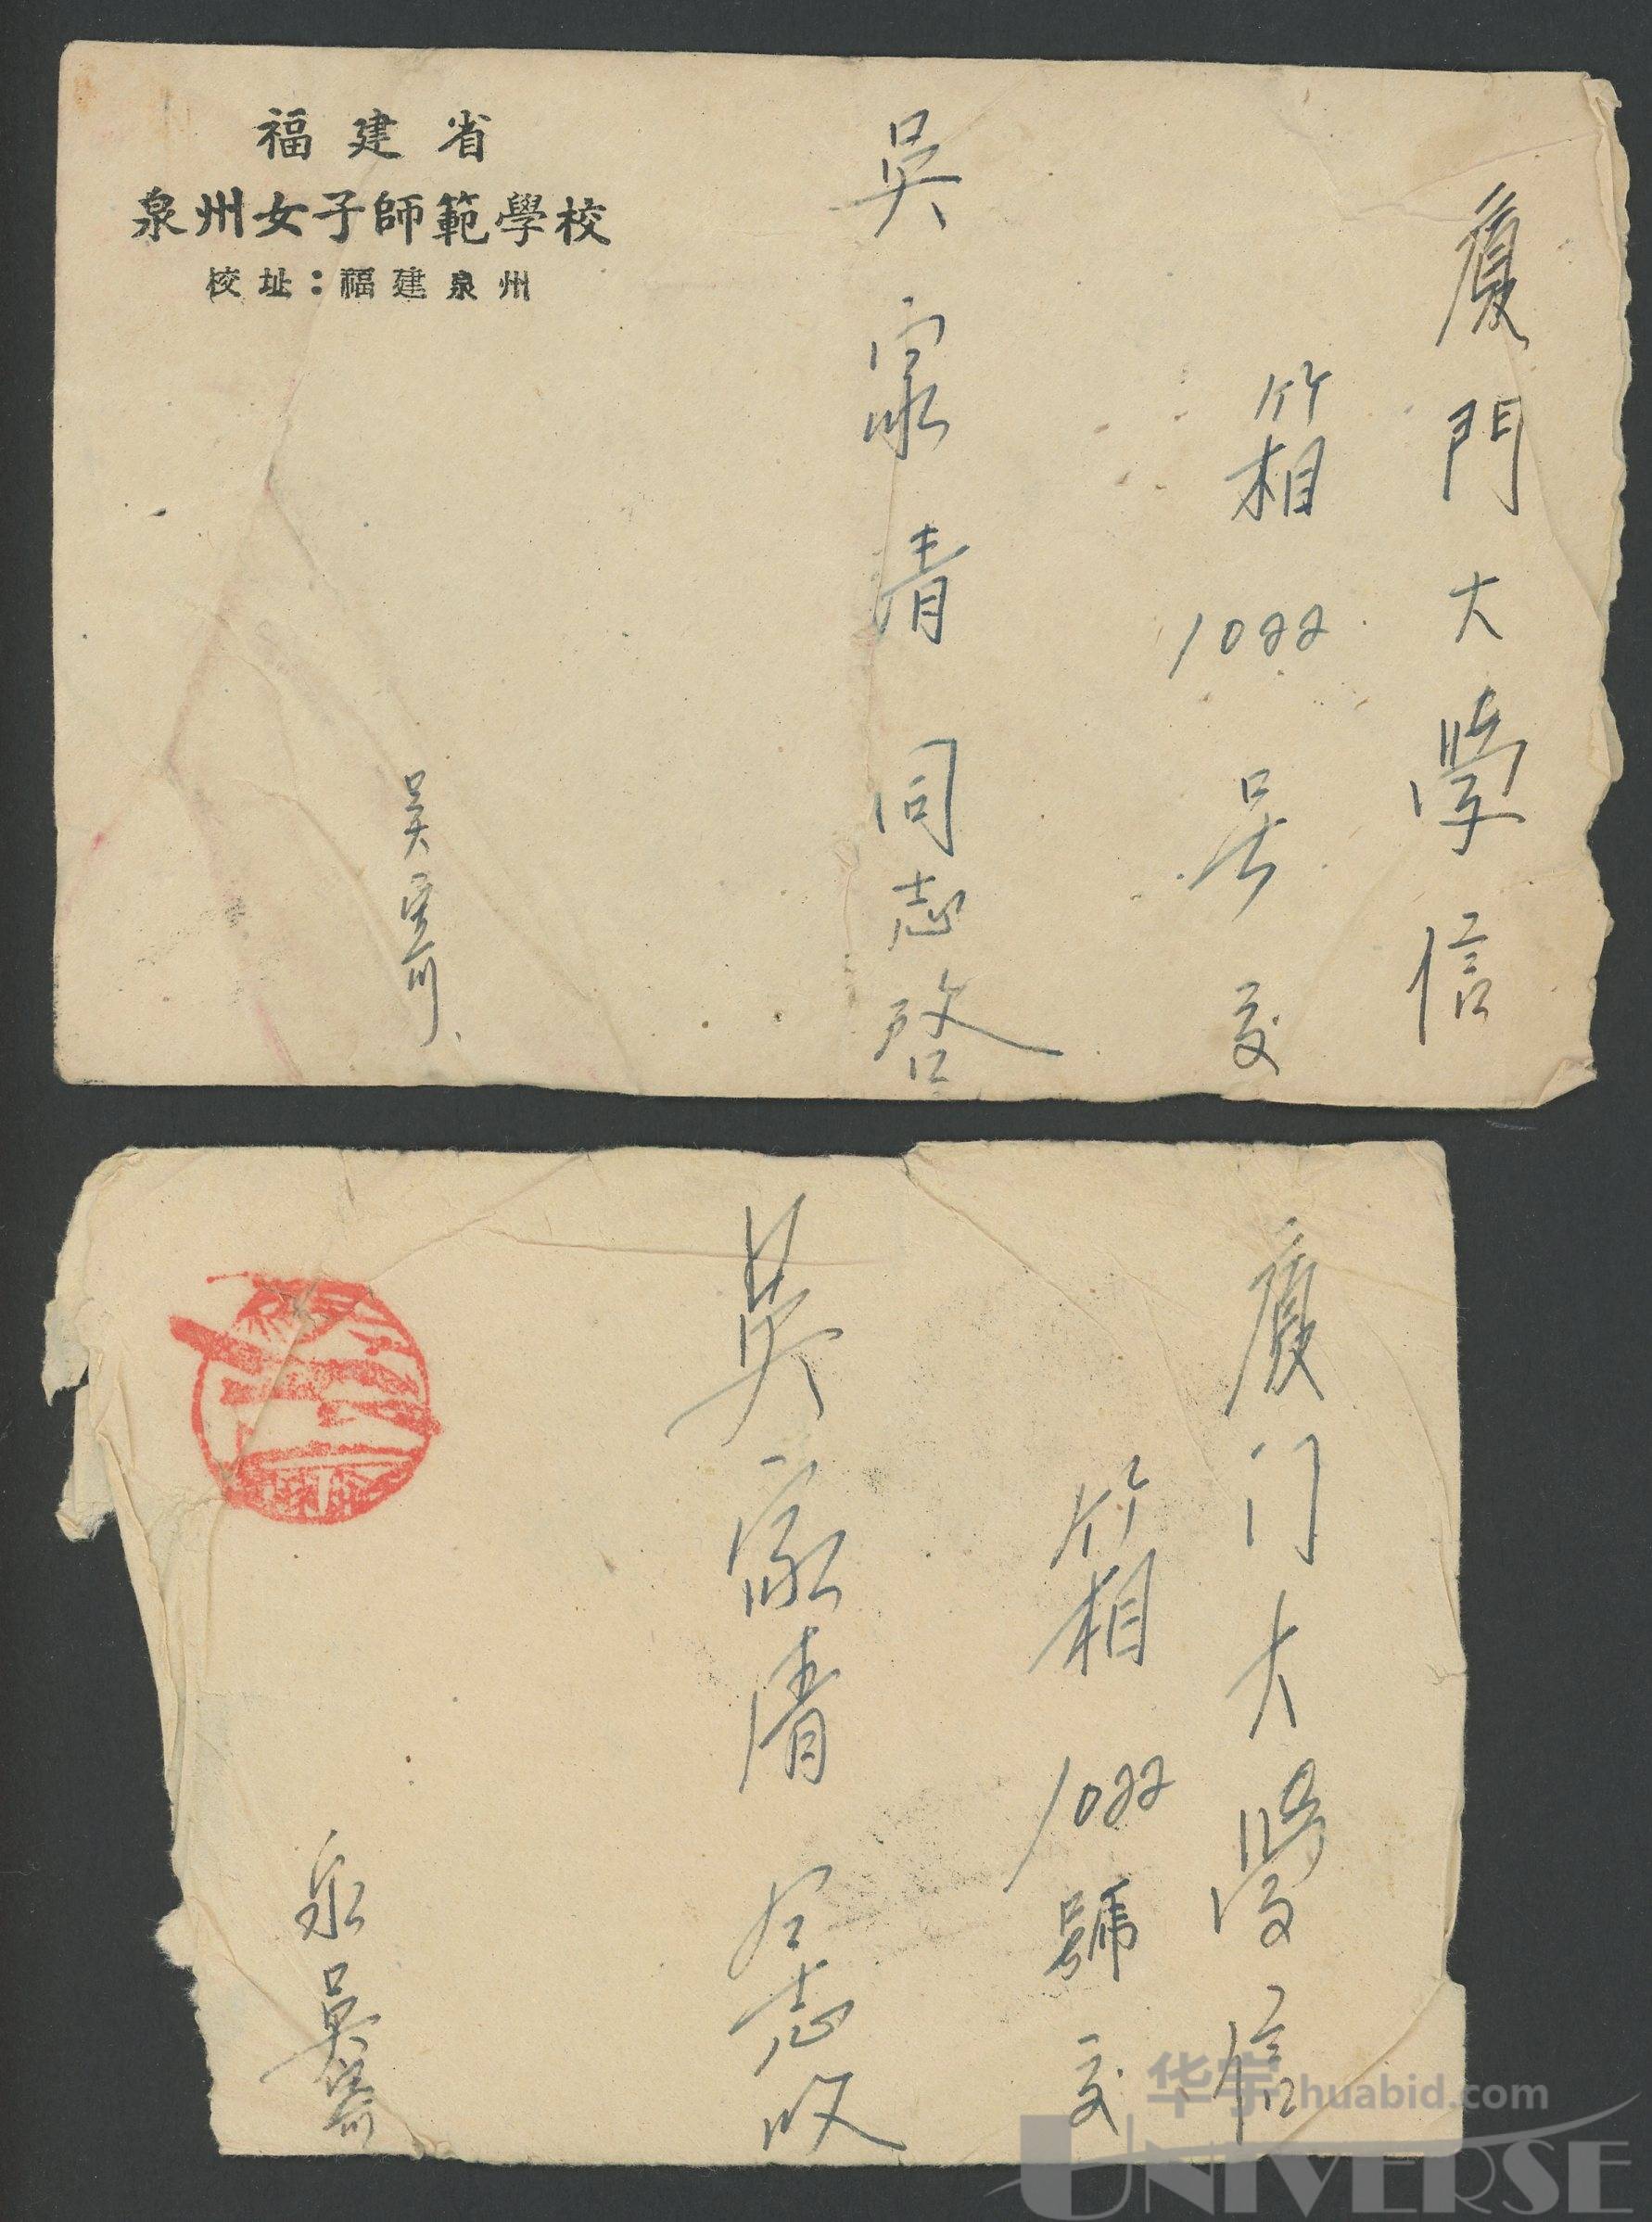 福建省
泉州女子師範學校
校址：福建泉州
廈門大學信
箱1022号交
吳家清同志啓
吴
廈门大学信
箱1022號交
吴家清同志收
泉吳
华宇huabid.com
UNIVERSE